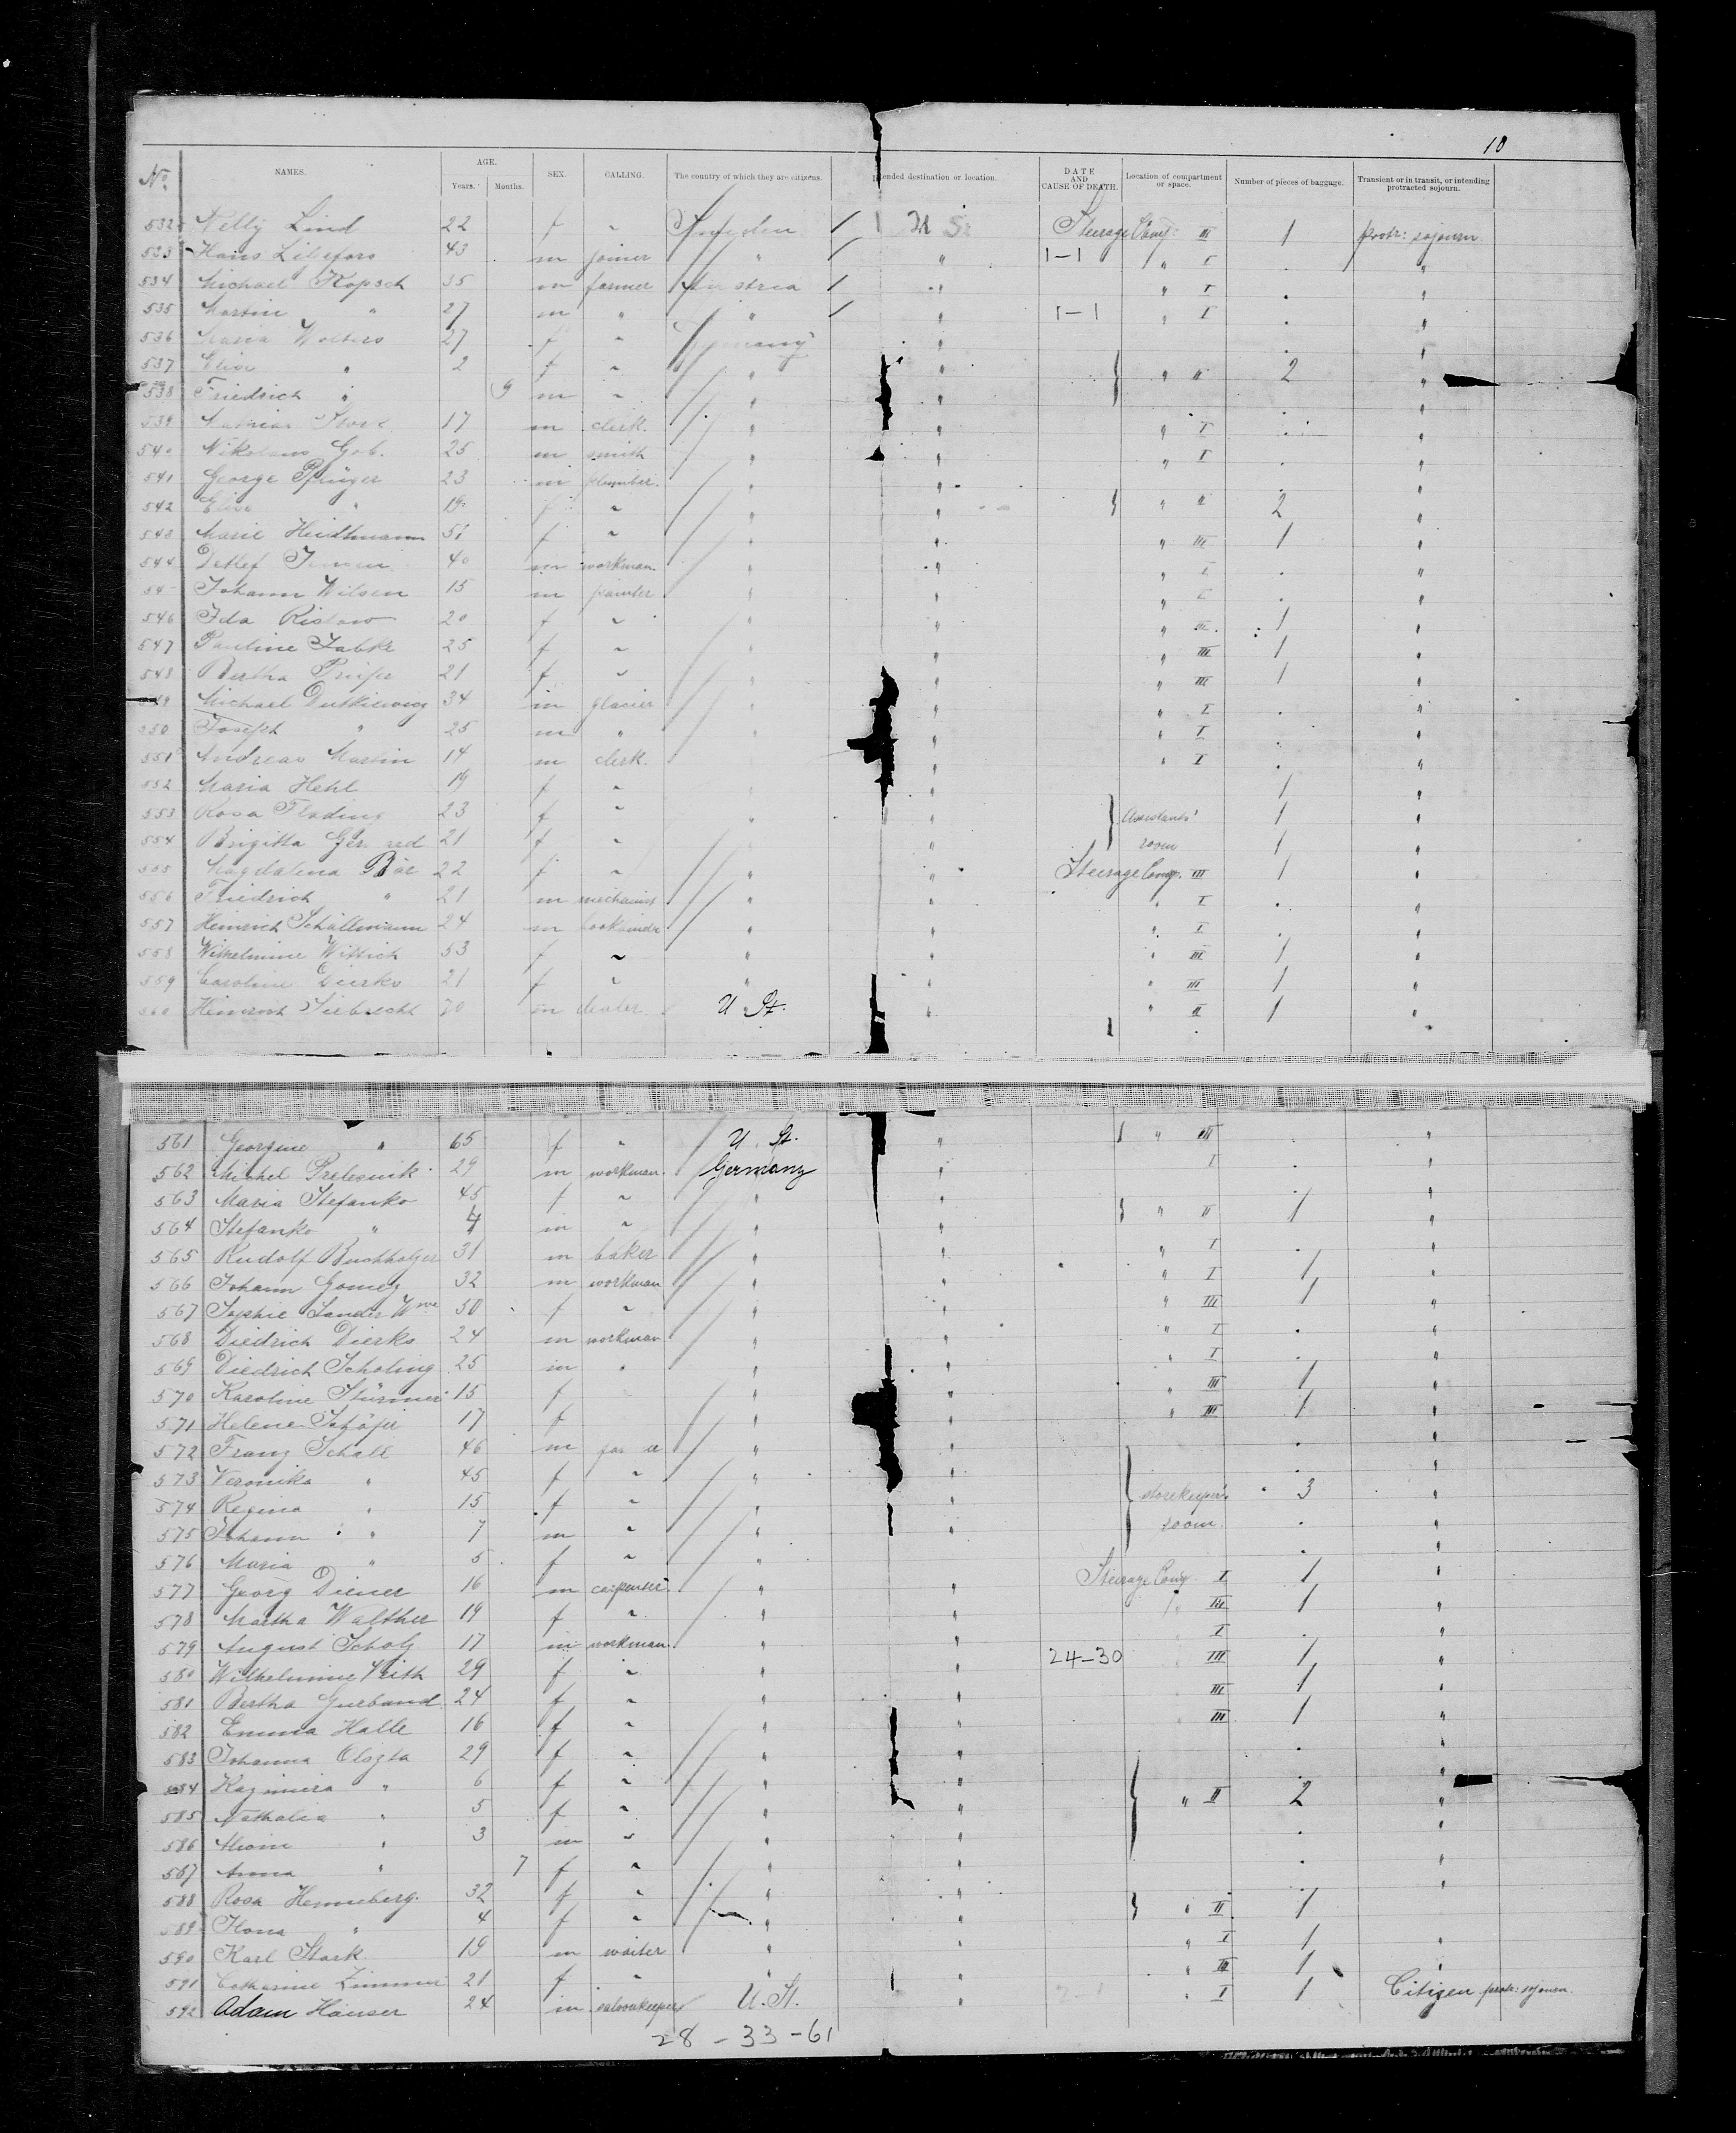 10
No. NAMES. AGE. Years. Months. SEX. CALLING. The country of which they are citizens. Intended destination or location. DATE AND CAUSE OF DEATH. Location of compartment or space. Number of pieces of baggage. Transient or in transit, or intending protracted sojourn.
532 Nelly Lind 22 f " Sweden / U St Steerage Comp: III 1 protr: sojourn
533 Hans Liliefors 43 m joiner " / " 1-1 " I . "
534 Michael Kopsch 35 m farmer Austria / " " I . "
535 Martin " 27 m " " / " 1-1 " I . "
536 Maria Wolters 27 f " Germany " . "
537 Elise " 2 f " " " " II 2 "
538 Friedrich " 9 m " " " "
539 17 m clerk. " " " I . "
540 Nikolaus Gob. 25 m smith " " " I . "
541 George Pflüger 23 m plumber. " " . "
542 Elise " 19 f " " " " II 2 "
543 Marie Heidtmann 51 f " " " " III 1 "
544 Detlef Jensen 40 m workman. " " " I . "
54 Johann Wilsen 15 m painter " " " I . "
546 Ida Ristow 20 f " " " " III 1 "
547 Pauline Jabke 25 f " " " " III 1 "
548 Bertha 21 f " " " " III 1 "
549 Michael 34 m glacier " " " I . "
550 Joseph " 25 m " " " " I . "
551 Andreas Martin 14 m clerk. " " I . "
552 Maria Hehl 19 f " " " 1 "
553 Rosa Flading 23 f " " " Assistants' 1 "
554 Brigitta 21 f " " " room 1 "
555 Magdalena Bär 22 f " " " Steerage Comp. III 1 "
556 Friedrich " 21 m mechanist " " " I . "
557 Heinrich Schallmann 24 m bookbinder " " " I . "
558 Wilhelmine Wittich 53 f " " " " III 1 "
559 Caroline Dierks 21 f " " " " III 1 "
560 Heinrich Siebrecht 70 m dealer U. St. " " II 1 "
561 Georgine " 65 f " U. St. " " III . "
562 Michel Prelesnik 29 m workman. Germany " I . "
563 Maria Stefanko 45 f " " " " II 1 "
564 Stefanko " 4 m " " " "
565 Rudolf Buchholzer 31 m baker " " " I . "
566 Johann Gomez 32 m workman " " " I 1 "
567 Sophie Sander Wwe 50 f " " " " III 1 "
568 Diedrich Dierks 24 m workman " " " I . "
569 Diedrich Scholing 25 m " " " " I . "
570 Karoline Stürmer 15 f " " " III 1 "
571 Helene Schäfer 17 f " " " III 1 "
572 Franz Schall 46 m " " . "
573 Veronika " 45 f " " " . "
574 Regina " 15 f " " " storekeeper's 3 "
575 Johann " 7 m " " " room. . "
576 Maria " 5 f " " . "
577 Georg Diener 16 m carpenter " " Steerage Comp. I 1 "
578 Martha Walther 19 f " " " " III 1 "
579 August Scholz 17 m workman. " " I . "
580 Wilhelmine Veith 29 f " " " 24-30 III 1 "
581 Bertha Gurband 24 f " " " III 1 "
582 Emma Halle 16 f " " " III 1 "
583 Johanna 29 f " " " . "
584 Kazimiera " 6 f " " " " II 2 "
585 Nathalia " 5 f " " " . "
586 " 3 m " " " "
587 Anna " 7 f " " " . "
588 Rosa Henneberg. 32 f " " " " II 1 "
589 Ilona " 4 f " " "
590 Karl Stark. 19 m waiter " " " I 1 "
591 Catharine Zimmer 21 f " " " " III 1 "
592 Adam Hauser 24 m saloonkeeper U. St. " " I 1 Citizen protr: sojourn.
28 - 33 - 61